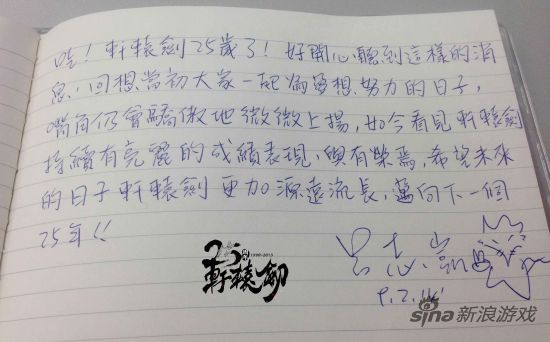 哇！軒轅劍25歲了！好開心聽到這樣的消
息，回想當初大家一起為夢想努力的日子，
嘴角仍會驕傲地微微上揚，如今看見軒轅劍
持續有亮麗的成績表現，與有榮焉，希望未來
的日子軒轅劍更加源遠流長，邁向下一個
25年！！
25
1990-2015
軒轅劍
sina新浪游戏